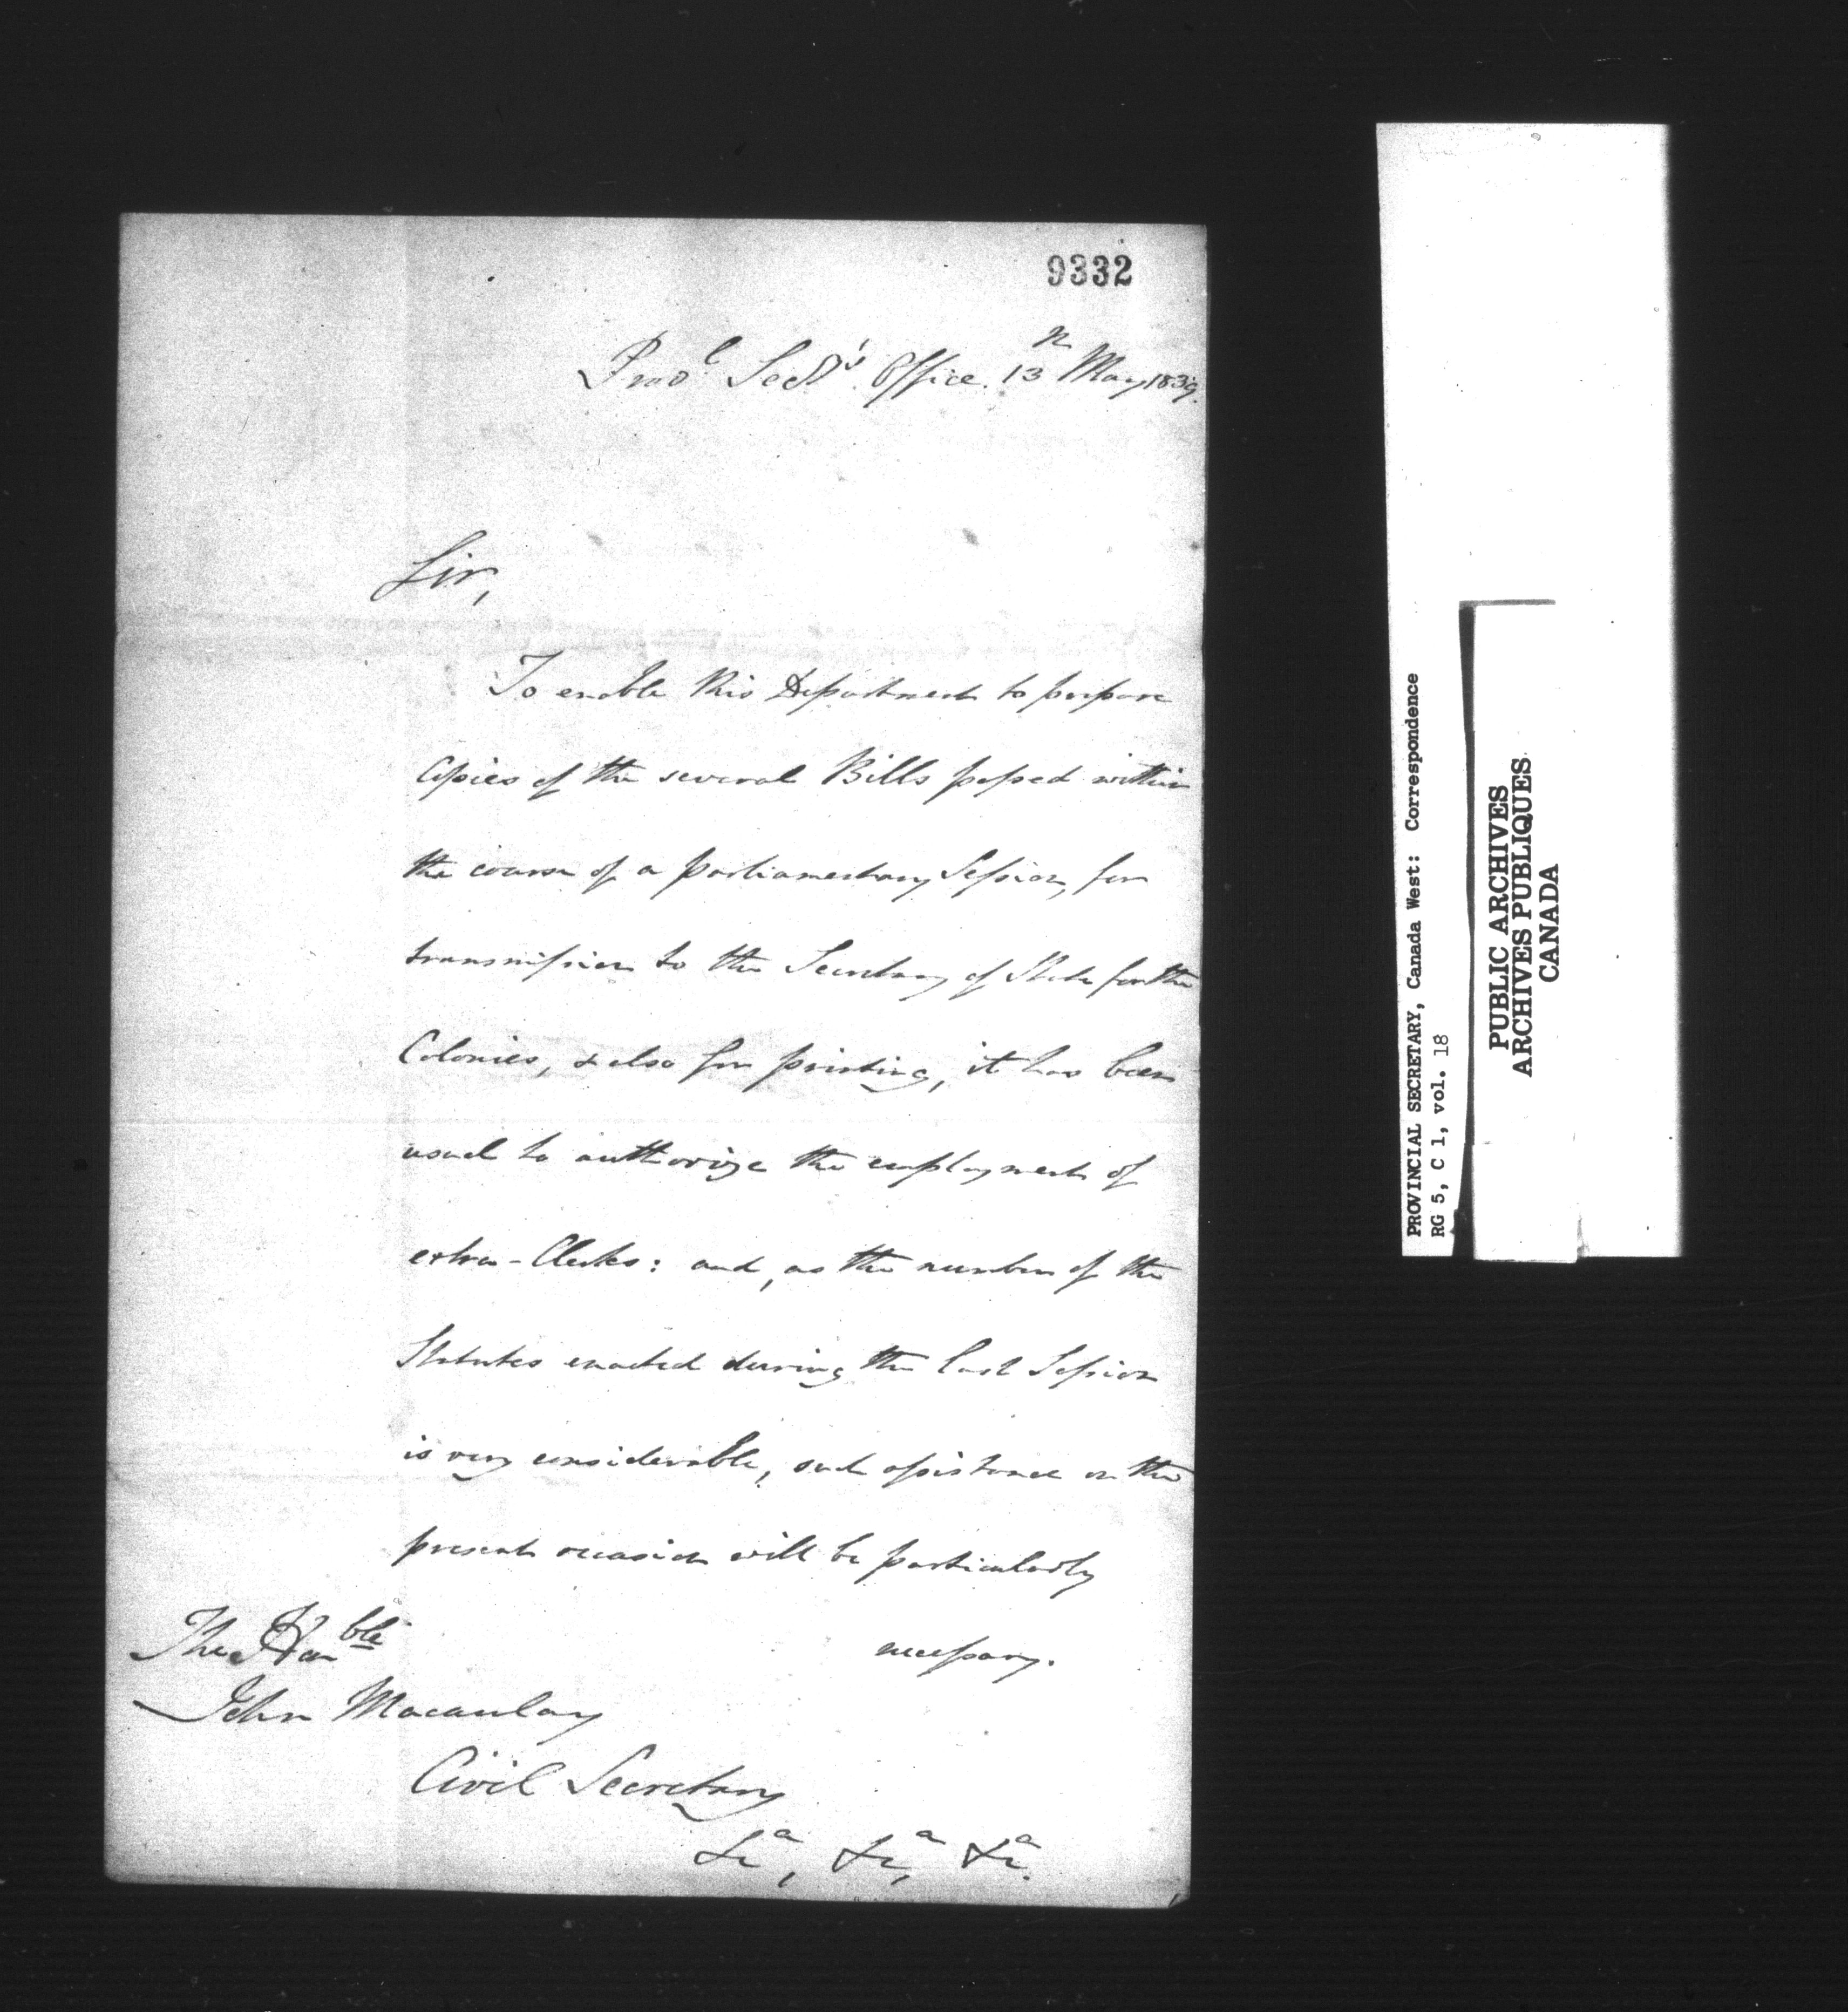 9332
Prov.l Secy's Office. 13th May 1839.
Sir,
To enable this Department to prepare
Copies of the several Bills passed within
the course of a parliamentary Session, for
transmission to the Secretary of State for the
Colonies, & also for printing, it has been
usual to authorize the employment of
extra-Clerks: and, as the number of the
Statutes enacted during the last Session
is very considerable, such assistance on the
present occasion will be particularly
necessary.
The Honble
John Macaulay
Civil Secretary
&ca, &ca, &ca.
PROVINCIAL SECRETARY, Canada West: Correspondence
RG 5, C 1, vol. 18
PUBLIC ARCHIVES
ARCHIVES PUBLIQUES
CANADA